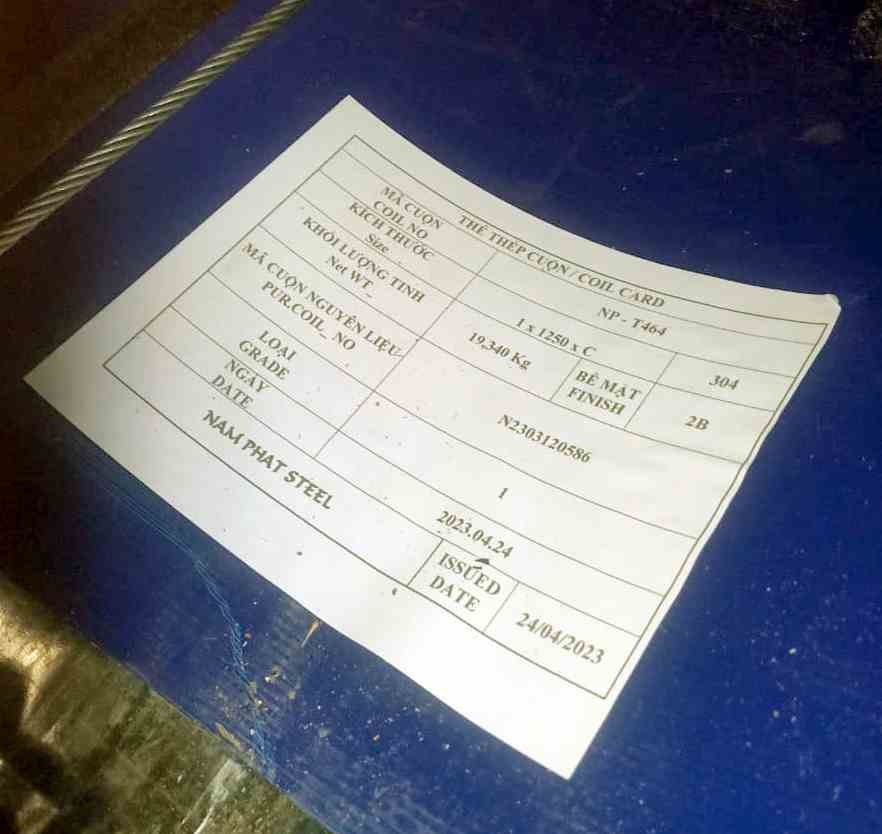 THẺ THÉP CUỘN / COIL CARD
MÃ CUỘN
COIL NO
NP - T464
KÍCH THƯỚC
Size
1 x 1250 x C
304
KHỐI LƯỢNG TỊNH
Net WT_
19,340 Kg
BỀ MẶT
FINISH
2B
MÃ CUỘN NGUYÊN LIỆU
PUR.COIL_ NO
N2303120586
LOẠI
GRADE
1
NGÀY
DATE
2023.04.24
NAM PHAT STEEL
ISSUED
DATE
24/04/2023